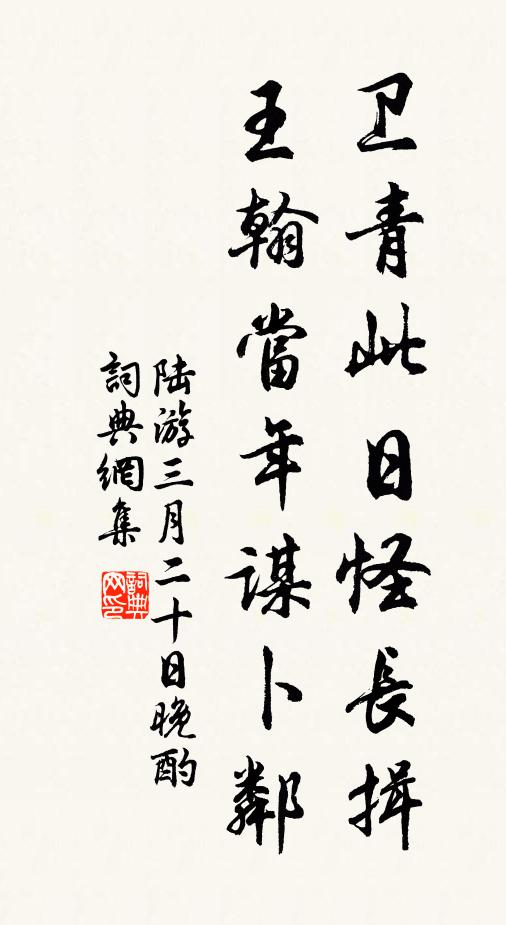 卫青此日怪長揖
王翰當年谋卜鄰
陆游三月二十日晚酌
詞典網集
詞典网印